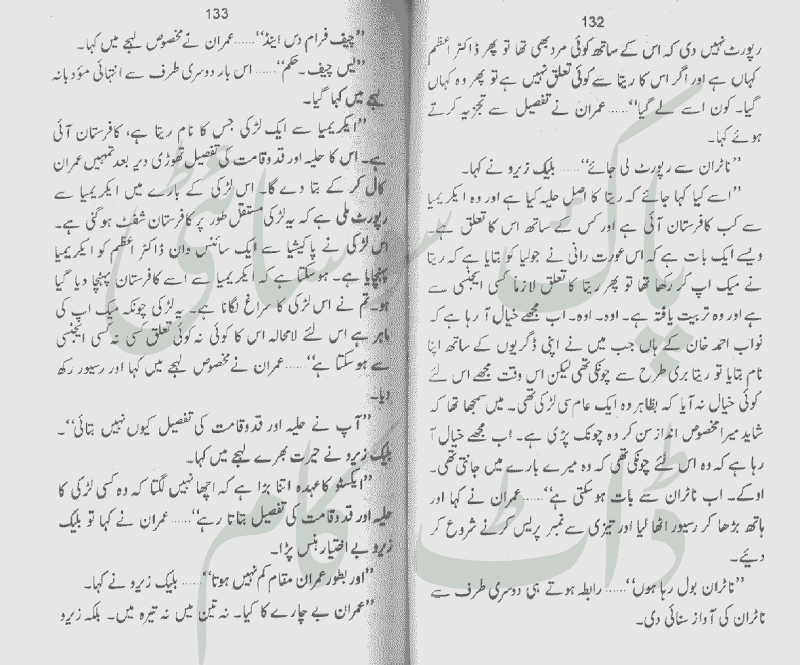 132
رپورٹ نہیں دی کہ اس کے ساتھ کوئی مرد بھی تھا تو پھر ڈاکٹر اعظم
کہاں ہے اور اگر اس کا ریتا سے کوئی تعلق نہیں ہے تو پھر وہ کہاں
گیا۔ کون اسے لے گیا‘‘...... عمران نے تفصیل سے تجزیہ کرتے
ہوئے کہا۔
’’ناٹران سے رپورٹ لی جائے‘‘...... بلیک زیرو نے کہا۔
’’اسے کیا کہا جائے کہ ریتا کا اصل حلیہ کیا ہے اور وہ ایکریمیا
سے کب کافرستان آئی ہے اور کس کے ساتھ اس کا تعلق ہے۔
ویسے ایک بات ہے کہ اس عورت رانی نے جولیا کو بتایا ہے کہ ریتا
نے میک اپ کر رکھا تھا تو پھر ریتا کا تعلق لازماً کسی ایجنسی سے
ہے اور وہ تربیت یافتہ ہے۔ اوہ۔ اوہ۔ اب مجھے خیال آ رہا ہے کہ
نواب احمد خان کے ہاں جب میں نے اپنی ڈگریوں کے ساتھ اپنا
نام بتایا تو ریتا بری طرح سے چونکی تھی لیکن اس وقت مجھے اس لئے
کوئی خیال نہ آیا کہ بظاہر وہ ایک عام سی لڑکی تھی۔ میں سمجھا تھا کہ
شاید میرا مخصوص انداز سن کر وہ چونک پڑی ہے۔ اب مجھے خیال آ
رہا ہے کہ وہ اس لئے چونکی تھی کہ وہ میرے بارے میں جانتی تھی۔
اوکے۔ اب ناٹران سے بات ہو سکتی ہے‘‘...... عمران نے کہا اور
ہاتھ بڑھا کر رسیور اٹھا لیا اور تیزی سے نمبر پریس کرنے شروع کر
دیئے۔
’’ناٹران بول رہا ہوں‘‘...... رابطہ ہوتے ہی دوسری طرف سے
ناٹران کی آواز سنائی دی۔
133
’’چیف فرام دس اینڈ‘‘...... عمران نے مخصوص لہجے میں کہا۔
’’یس چیف۔ حکم‘‘...... اس بار دوسری طرف سے انتہائی مؤدبانہ
لہجے میں کہا گیا۔
’’ایکریمیا سے ایک لڑکی جس کا نام ریتا ہے، کافرستان آئی
ہے۔ اس کا حلیہ اور قدوقامت کی تفصیل تھوڑی دیر بعد تمہیں عمران
کال کر کے بتا دے گا۔ اس لڑکی کے بارے میں ایکریمیا سے
رپورٹ ملی ہے کہ یہ لڑکی مستقل طور پر کافرستان شفٹ ہو گئی ہے۔
اس لڑکی نے پاکیشیا سے ایک سائنس دان ڈاکٹر اعظم کو ایکریمیا
پہنچایا ہے۔ ہو سکتا ہے کہ ایکریمیا سے اسے کافرستان پہنچا دیا گیا
ہو۔ تم نے اس لڑکی کا سراغ لگانا ہے۔ یہ لڑکی چونکہ میک اپ کی
ماہر ہے اس لئے لامحالہ اس کا کوئی نہ کوئی تعلق کسی نہ کسی ایجنسی
سے ہو سکتا ہے‘‘...... عمران نے مخصوص لہجے میں کہا اور رسیور رکھ
دیا۔
’’آپ نے حلیہ اور قدوقامت کی تفصیل کیوں نہیں بتائی‘‘۔
بلیک زیرو نے حیرت بھرے لہجے میں کہا۔
’’ایکسٹو کا عہدہ اتنا بڑا ہے کہ اچھا نہیں لگتا کہ وہ کسی لڑکی کا
حلیہ اور قدوقامت کی تفصیل بتاتا رہے‘‘...... عمران نے کہا تو بلیک
زیرو بے اختیار ہنس پڑا۔
’’اور بطور عمران مقام کم نہیں ہوتا‘‘...... بلیک زیرو نے کہا۔
’’عمران بے چارے کا کیا۔ نہ تین میں نہ تیرہ میں۔ بلکہ زیرو
پاک سوسائٹی
ڈاٹ کام